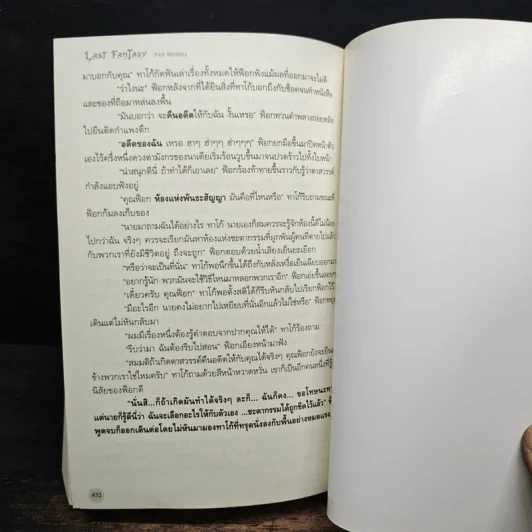 LAST FANTASY Part Mystery
ผาบอกกับคุณ" ทาโก้กัดฟันเล่าเรื่องทั้งหมดให้ฟ็อกฟังแม้ผลที่ออกมาจะไม่ดี
"ว่าไงนะ" ฟ็อกหลังจากที่ได้ยินสิ่งที่ทาโก้บอกถึงกับช็อคจนทำหนังสือ
และของที่ถือมาหล่นลงพื้น
"มันบอกว่า จะคืนอดีตให้กับฉัน งั้นเหรอ" ฟ็อกทวนคำพลางถอยหลัง
ไปยืนติดกำแพงตึก
"อดีตของฉัน เหรอ ฮาๆ ฮ่าๆๆ ฮ่าๆๆๆ" ฟ็อกยกมือขึ้นมาปิดหน้าตัว
เองไว้ครึ่งหนึ่งดวงตามังกรของนาเดียเริ่มร้อนวูบขึ้นมาจนปวดร้าวไปทั้งใบหน้า
"น่าสนุกดีนี่ ถ้าทำได้ก็เอาเลย" ฟ็อกร้องท้าทายขึ้นราวกับรู้ว่าดาสวรรค์
กำลังแอบฟังอยู่
"คุณฟ็อก ห้องแห่งพันธะสัญญา มันคือที่ไหนหรือ" ทาโก้รีบถามขณะที่
ฟ็อกก้มลงเก็บของ
"นายมาถามฉันได้อย่างไร ทาโก้ นายเองก็สมควรจะรู้จักห้องนี้ดีไม่น้อย
ไปกว่าฉัน จริงๆ ควรจะเรียกมันหาห้องแห่งชะตากรรมที่ผูกพันผู้คนที่ตายไปแล้ว
กับพวกเราที่ยังมีชีวิตอยู่ ถึงจะถูก" ฟ็อกตอบด้วยน้ำเสียงเย็นยะเยือก
"หรือว่าจะเป็นที่นั่น" ทาโก้พอนึกขึ้นได้ถึงกับหลั่งเหงื่อเย็นเฉียบออกมา
"อยากรู้นัก พวกมันจะใช้วิธีไหนมาหลอกพวกเราอีก" ฟ็อกเอ่ยขึ้นลอยๆ
"เดี๋ยวครับ คุณฟ็อก" ทาโก้พอตั้งสติได้ก็รีบหันกลับไปเรียกฟ็อกไว้
"มีอะไรอีก นายคงไม่อยากไปเหยียบที่นั่นอีกแล้วไม่ใช่หรือ" ฟ็อกหยุด
เดินแต่ไม่หันกลับมา
"ผมมีเรื่องหนึ่งต้องรู้คำตอบจากปากคุณให้ได้" ทาโก้ร้องถาม
"รีบว่ามา ฉันต้องรีบไปสอน" ฟ็อกเอียงหน้ามาฟัง
"สมมติถ้าเกิดดาสวรรค์คืนอดีตให้กับคุณได้จริงๆ คุณฟ็อกยังจะยืน
ข้างพวกเราใช่ไหมครับ" ทาโก้ถามด้วยสีหน้าหวาดหวั่น เขาก็เป็นอีกคนหนึ่งที่รู้
นิสัยของฟ็อกดี
"นั่นสิ...ก็ถ้าเกิดมันทำได้จริงๆ ละก็... ฉันก็คง... ขอโทษนะ
แต่นายก็รู้ดีนี่ว่า ฉันจะเลือกอะไรให้กับตัวเอง ...ชะตากรรมได้ถูกขีดไว้แล้ว"
พูดจบก็ออกเดินต่อโดยไม่หันมามองทาโก้ที่ทรุดนั่งลงกับพื้นอย่างหมดแรง
432